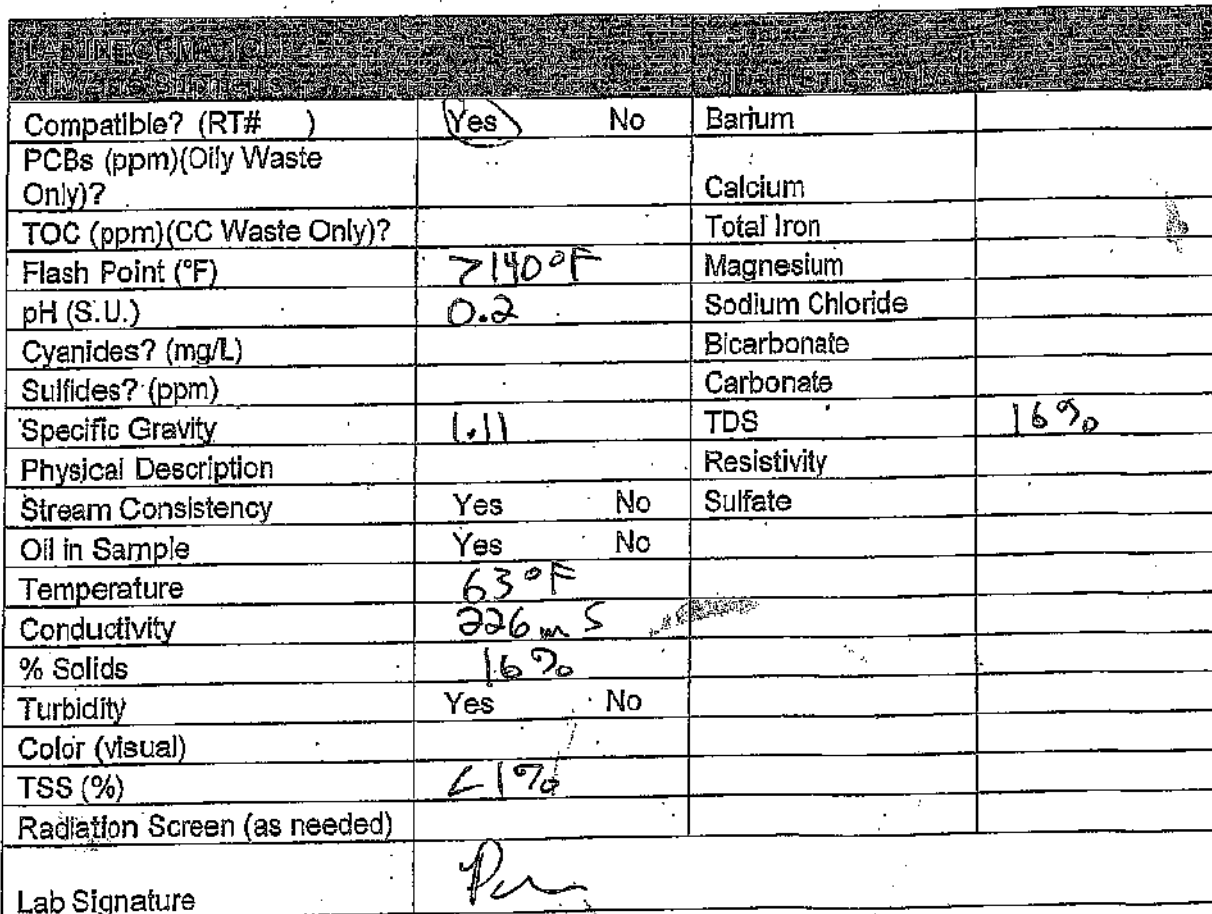 LAB INFORMATION
Compatible? (RT# ) Yes No Barium
PCBs (ppm)(Oily Waste
Only)? Calcium
TOC (ppm)(CC Waste Only)? Total Iron
Flash Point (°F) >140°F Magnesium
pH (S.U.) 0.2 Sodium Chloride
Cyanides? (mg/L) Bicarbonate
Sulfides? (ppm) Carbonate
Specific Gravity 1.11 TDS 16%
Physical Description Resistivity
Stream Consistency Yes No Sulfate
Oil in Sample Yes No
Temperature 63°F
Conductivity 226 mS
% Solids 16%
Turbidity Yes No
Color (visual)
TSS (%) <1%
Radiation Screen (as needed)
Lab Signature